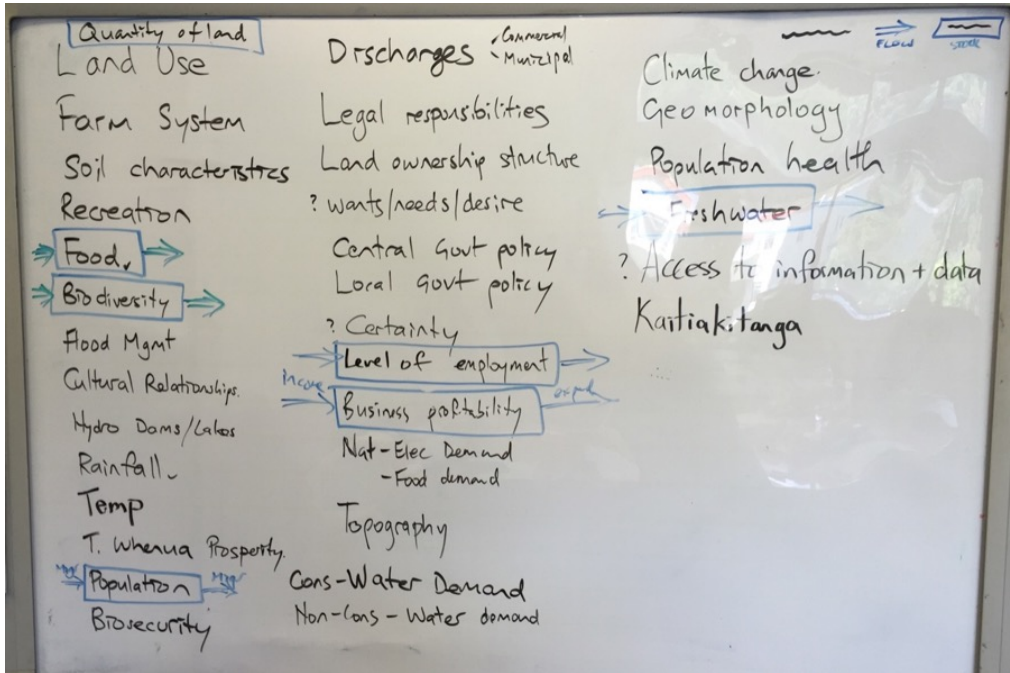 Quantity of land
Land Use
Farm System
Soil characteristics
Recreation
Food
Biodiversity
Flood Mgmt
Cultural Relationships.
Hydro Dams/Lakes
Rainfall
Temp
T. Whenua Prosperity.
Population
Biosecurity
Discharges
Commercial
Municipal
Legal responsibilities
Land ownership structure
? wants/needs/desire
Central Govt policy
Local Govt policy
? Certainty
Level of employment
income
Business profitability
Nat-Elec Demand
-Food demand
Topography
Cons-Water Demand
Non-Cons-Water demand
FLOW
STOCK
Climate change.
Geomorphology
Population health
Freshwater
? Access to information + data
Kaitiakitanga